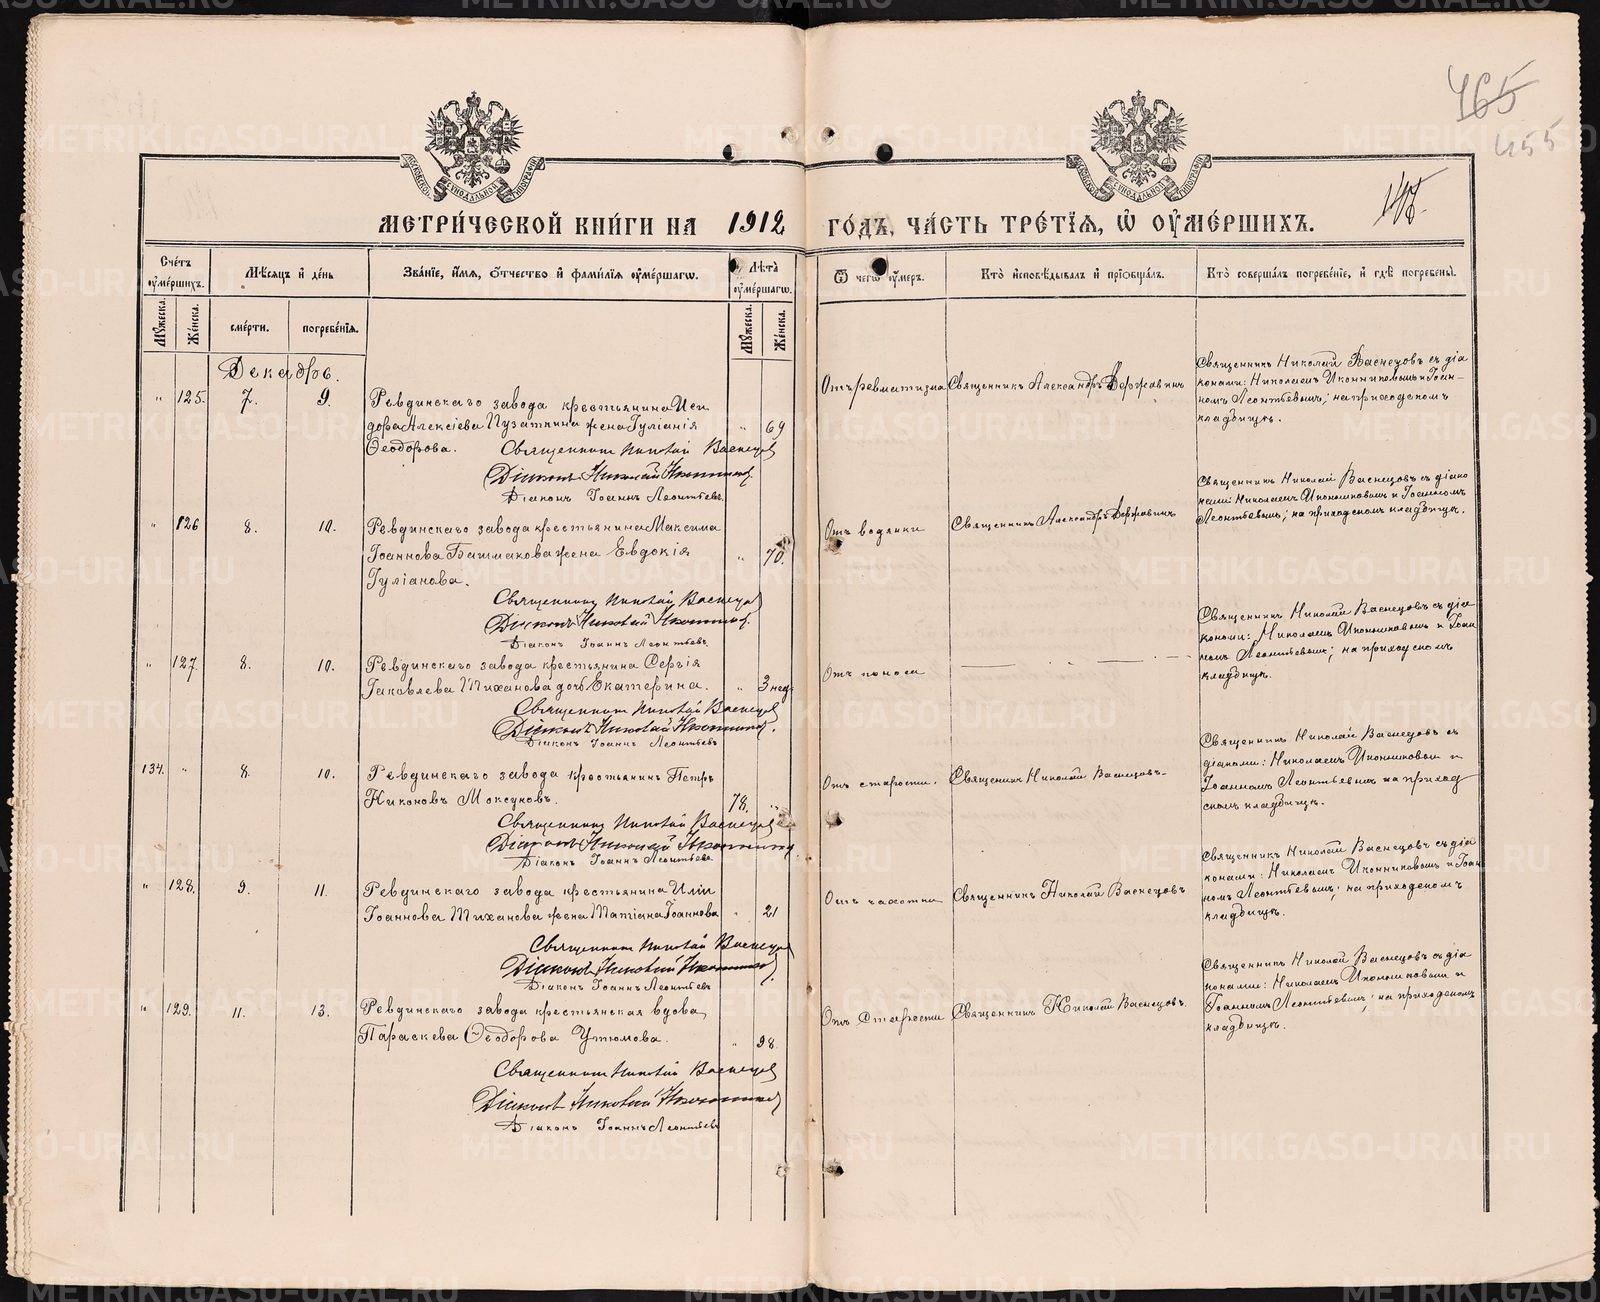 465
455
148.
МЕТРИ́ЧЕСКОЙ КНИ́ГИ НА 1912 ГО́ДЪ, ЧА́СТЬ ТРЕ́ТІѦ, Ѡ ОУМЕ́РШИХЪ.
Сче́тъ оуме́ршихъ.
Мѣсяцъ и де́нь
Зва́ніе, и́мя, о́тчество и фами́лія оуме́ршагѡ.
Лѣта̀ оуме́ршагѡ.
Ѿ чегѡ̀ оу́меръ.
Кто̀ исповѣ́дывалъ и пріобща́лъ.
Кто̀ соверша́лъ погребе́ніе, и гдѣ̀ погребены̀.
Му́жеска.
Же́нска.
сме́рти.
погребе́нія.
Му́жеска.
Же́нска.
Декабрь.
" 125. 7. 9.
Ревдинскаго завода крестьянина Иси
дора Алексіева Пузаткина жена Іуліанія " 69
Ѳеодорова.
Священникъ Николай Васнецовъ
Діаконъ Николай Иконниковъ
Діаконъ Іоаннъ Леонтьевъ.
Отъ ревматизма
Священникъ Александръ Державинъ
Священникъ Николай Васнецовъ съ діа
конами: Николаемъ Иконниковымъ и Іоан-
номъ Леонтьевымъ; на приходскомъ
кладбищѣ.
" 126 8. 10.
Ревдинскаго завода крестьянина Максима
Іоаннова Башмакова жена Евдокія " 70.
Іуліанова.
Священникъ Николай Васнецовъ
Діаконъ Николай Иконниковъ
Діаконъ Іоаннъ Леонтьевъ
Отъ водянки
Священникъ Александръ Державинъ
Священникъ Николай Васнецовъ съ діако
нами: Николаемъ Иконниковымъ и Іоанномъ
Леонтьевымъ; на приходскомъ кладбищѣ.
" 127. 8. 10.
Ревдинскаго завода крестьянина Сергія
Іаковлева Тиханова дочь Екатерина. " 3 нед.
Священникъ Николай Васнецовъ
Діаконъ Николай Иконниковъ.
Діаконъ Іоаннъ Леонтьевъ
Отъ поноса
Священникъ Николай Васнецовъ съ діа
конами: Николаемъ Иконниковымъ и Іоан
номъ Леонтьевымъ; на приходскомъ
кладбищѣ.
134. " 8. 10.
Ревдинскаго завода крестьянинъ Петръ
Никоновъ Моксуновъ. 78. "
Священникъ Николай Васнецовъ
Діаконъ Николай Иконниковъ.
Діаконъ Іоаннъ Леонтьевъ
Отъ старости.
Священникъ Николай Васнецовъ.
Священникъ Николай Васнецовъ съ
діаконами: Николаемъ Иконниковымъ и
Іоанномъ Леонтьевымъ на приход
скомъ кладбищѣ.
" 128. 9. 11.
Ревдинскаго завода крестьянина Иліи
Іоаннова Тиханова жена Татіана Іоаннова " 21
Священникъ Николай Васнецовъ
Діаконъ Николай Иконниковъ.
Діаконъ Іоаннъ Леонтьевъ
Отъ чахотки
Священникъ Николай Васнецовъ
Священникъ Николай Васнецовъ съ діа
конами: Николаемъ Иконниковымъ и Іоан
номъ Леонтьевымъ; на приходскомъ
кладбищѣ.
" 129. 11. 13.
Ревдинскаго завода крестьянская вдова
Параскева Ѳеодорова Утюмова. " 98.
Священникъ Николай Васнецовъ
Діаконъ Николай Иконниковъ
Діаконъ Іоаннъ Леонтьевъ
Отъ старости
Священникъ Николай Васнецовъ.
Священникъ Николай Васнецовъ съ діа
конами: Николаемъ Иконниковымъ и
Іоанномъ Леонтьевымъ; на приходскомъ
кладбищѣ.
METRIKI.GASO-URAL.RU